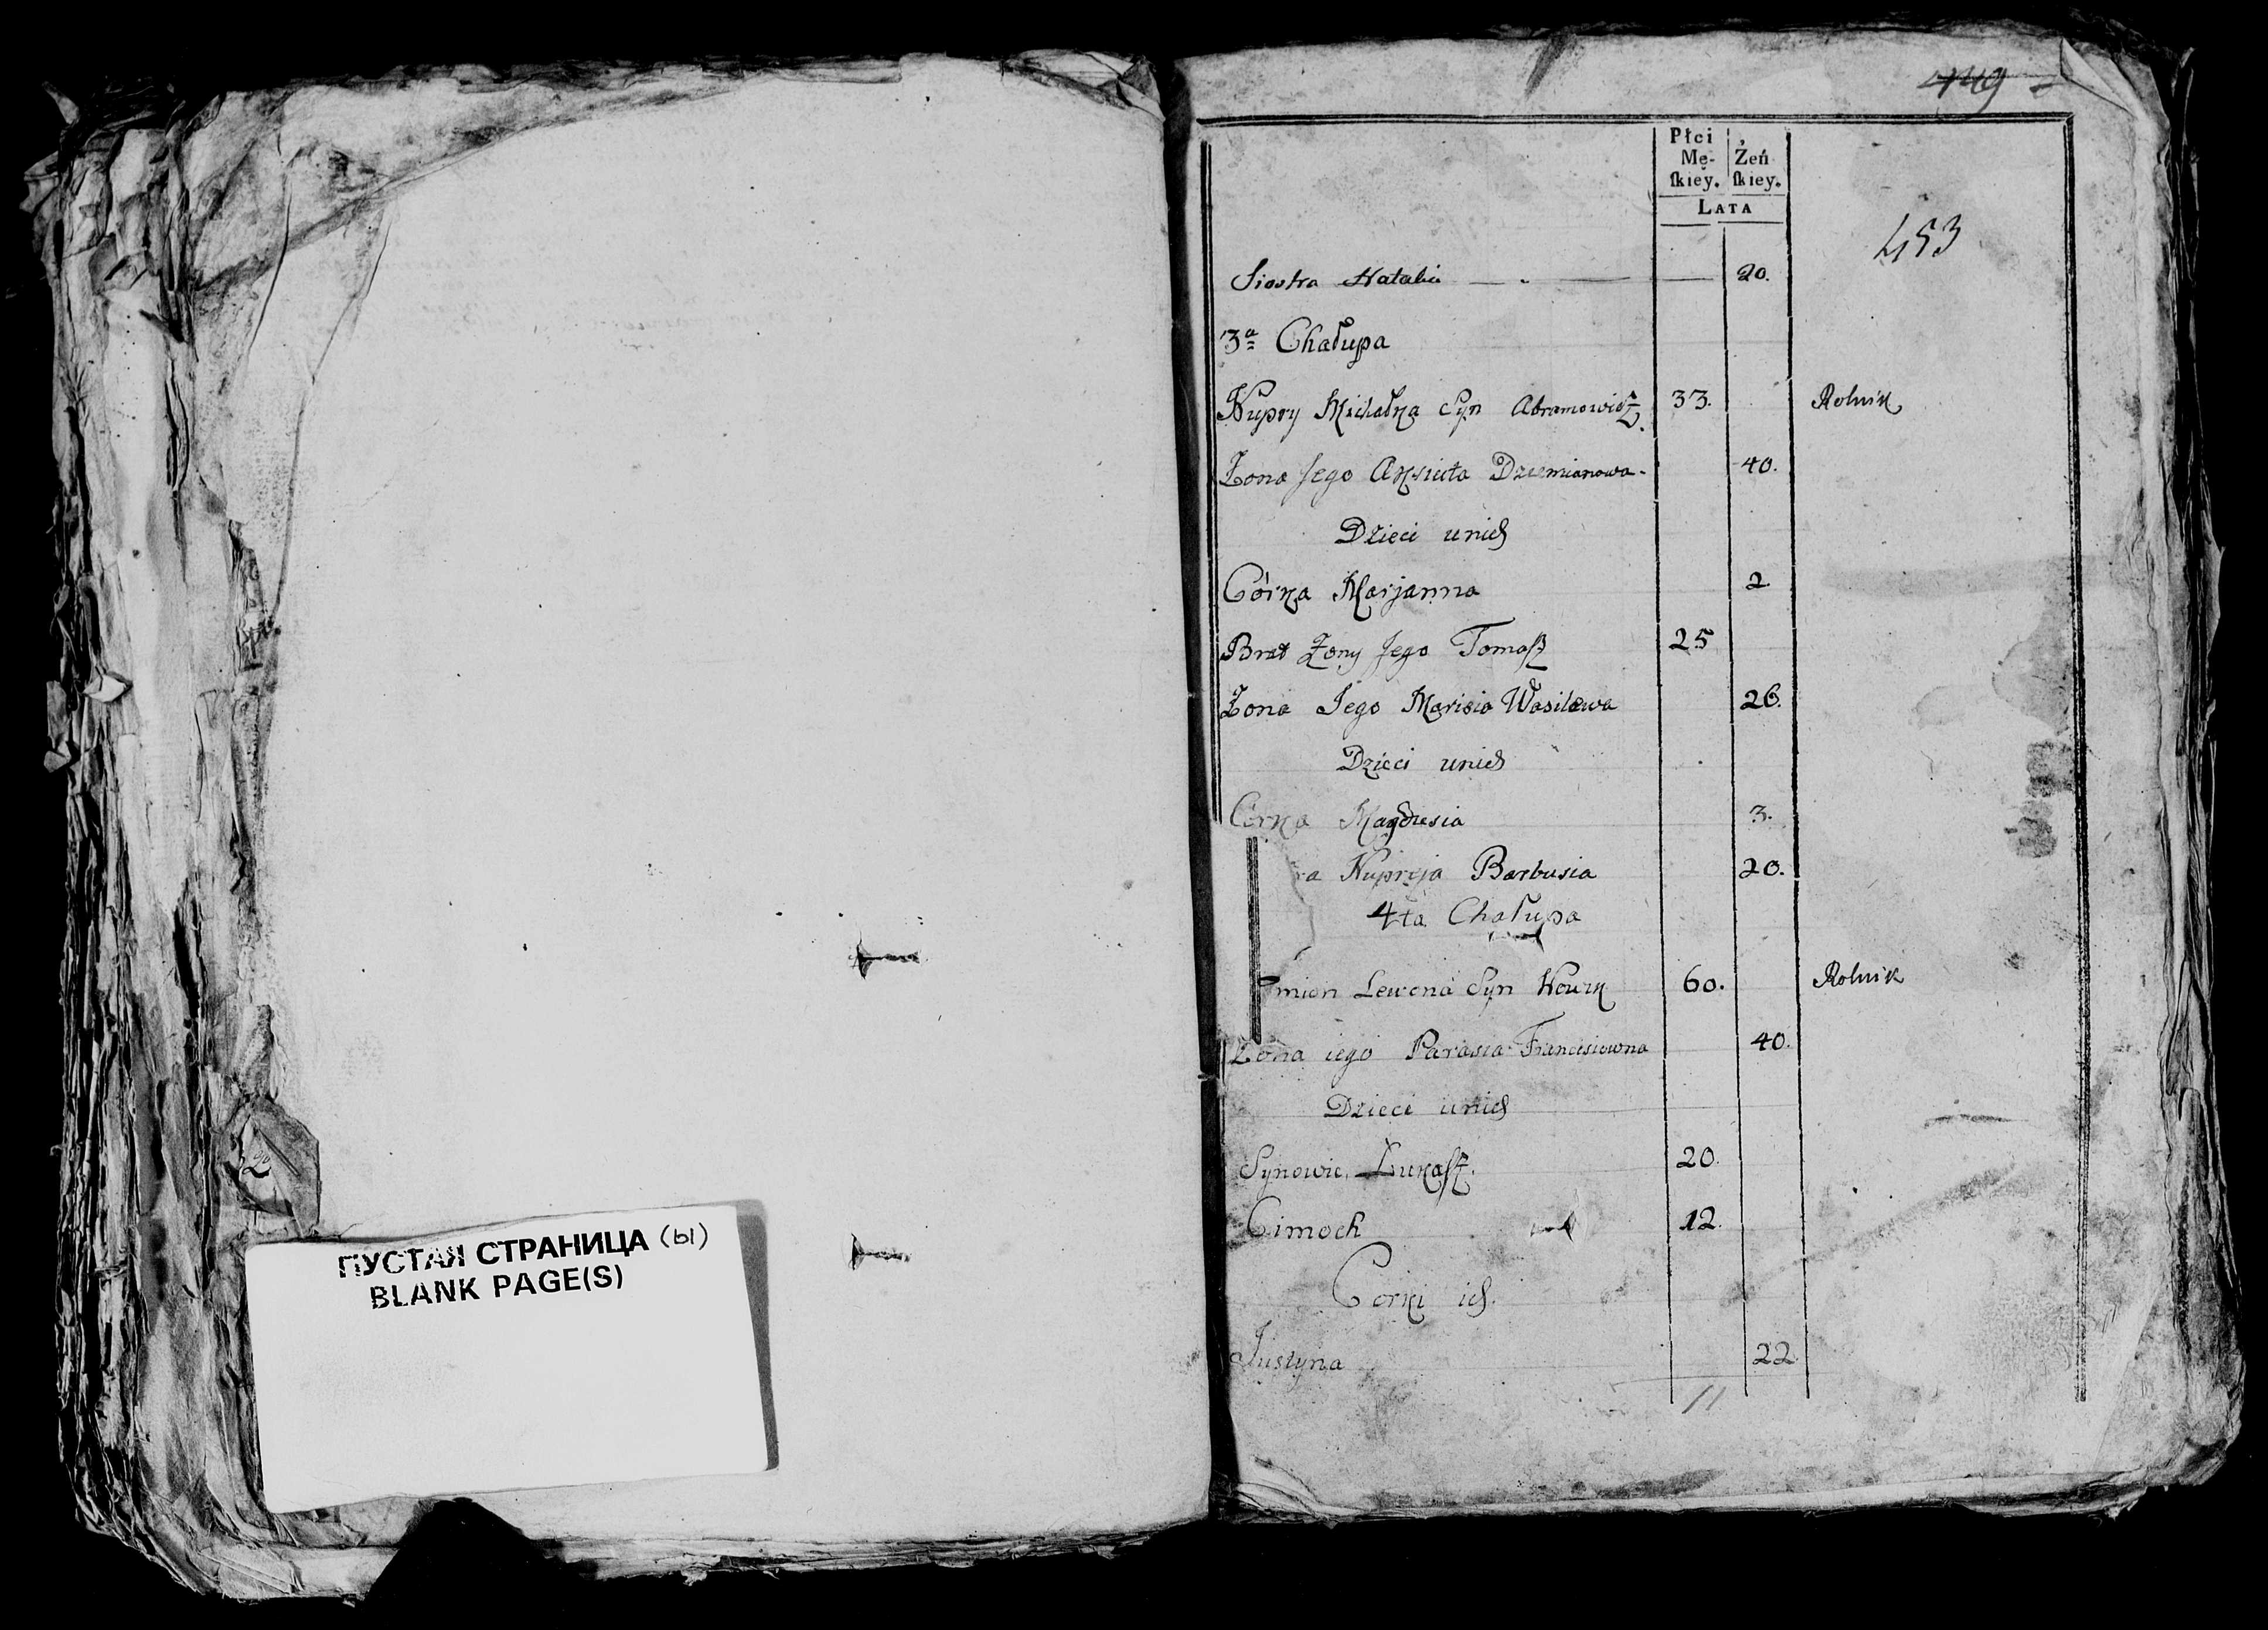 ПУСТАЯ СТРАНИЦА (ы)
BLANK PAGE(S)
449
Płci
Mę- Żeń
skiey. skiey.
LATA
453
Siostra Natalia — 20.
3a Chałupa
Kupry Michałka Syn Abramowicz. 33. Rolnik
Żona Jego Aksiuta Dziemianowa 40.
Dzieci unich
Córka Marjanna 2
Brat Żony Jego Tomasz 25
Żona Jego Marisia Wasilewa 26.
Dzieci unich
Córka Magdzesia 3.
ra Kupreja Barbusia 20.
4ta Chałupa
mion Lewona Syn 60. Rolnik
Żona iego Parasia Francisiowna 40.
Dzieci unich
Synowie Łukasz. 20.
Cimoch 12.
Corki ich.
Justyna 22
11